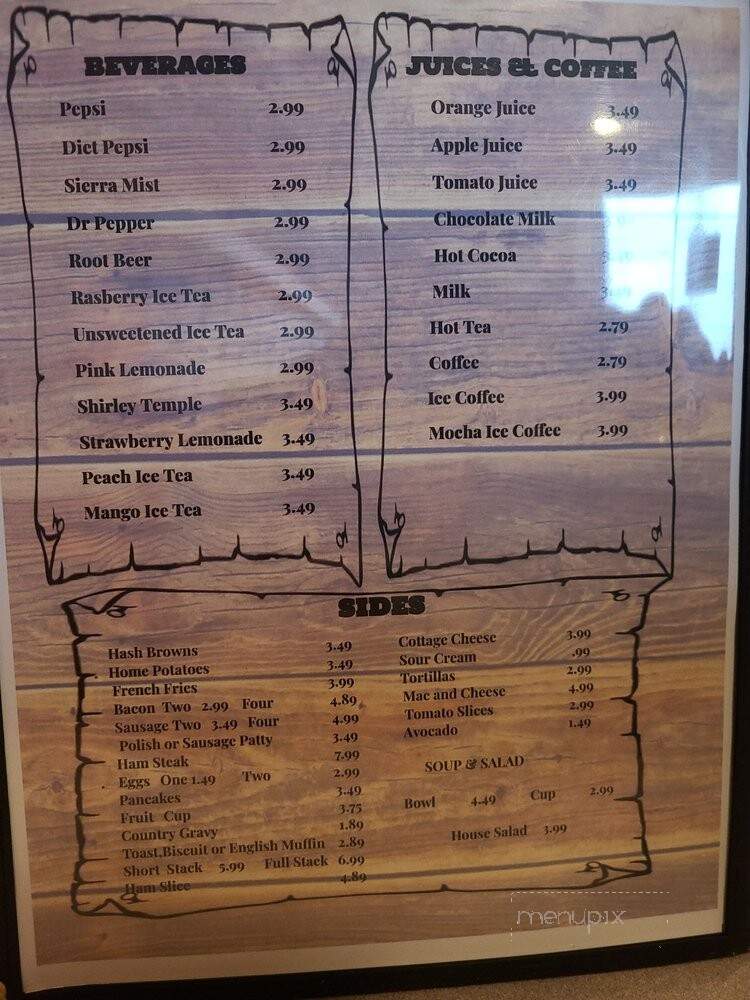 BEVERAGES
Pepsi 2.99
Diet Pepsi 2.99
Sierra Mist 2.99
Dr Pepper 2.99
Root Beer 2.99
Rasberry Ice Tea 2.99
Unsweetened Ice Tea 2.99
Pink Lemonade 2.99
Shirley Temple 3.49
Strawberry Lemonade 3.49
Peach Ice Tea 3.49
Mango Ice Tea 3.49
JUICES & COFFEE
Orange Juice 3.49
Apple Juice 3.49
Tomato Juice 3.49
Chocolate Milk
Hot Cocoa
Milk
Hot Tea 2.79
Coffee 2.79
Ice Coffee 3.99
Mocha Ice Coffee 3.99
SIDES
Hash Browns 3.49
Home Potatoes 3.49
French Fries 3.99
Bacon Two 2.99 Four 4.89
Sausage Two 3.49 Four 4.99
Polish or Sausage Patty 3.49
Ham Steak 7.99
Eggs One 1.49 Two 2.99
Pancakes 3.49
Fruit Cup 3.75
Country Gravy 1.89
Toast,Biscuit or English Muffin 2.89
Short Stack 5.99 Full Stack 6.99
Ham Slice 4.89
Cottage Cheese 3.99
Sour Cream .99
Tortillas 2.99
Mac and Cheese 4.99
Tomato Slices 2.99
Avocado 1.49
SOUP & SALAD
Bowl 4.49 Cup 2.99
House Salad 3.99
menupix